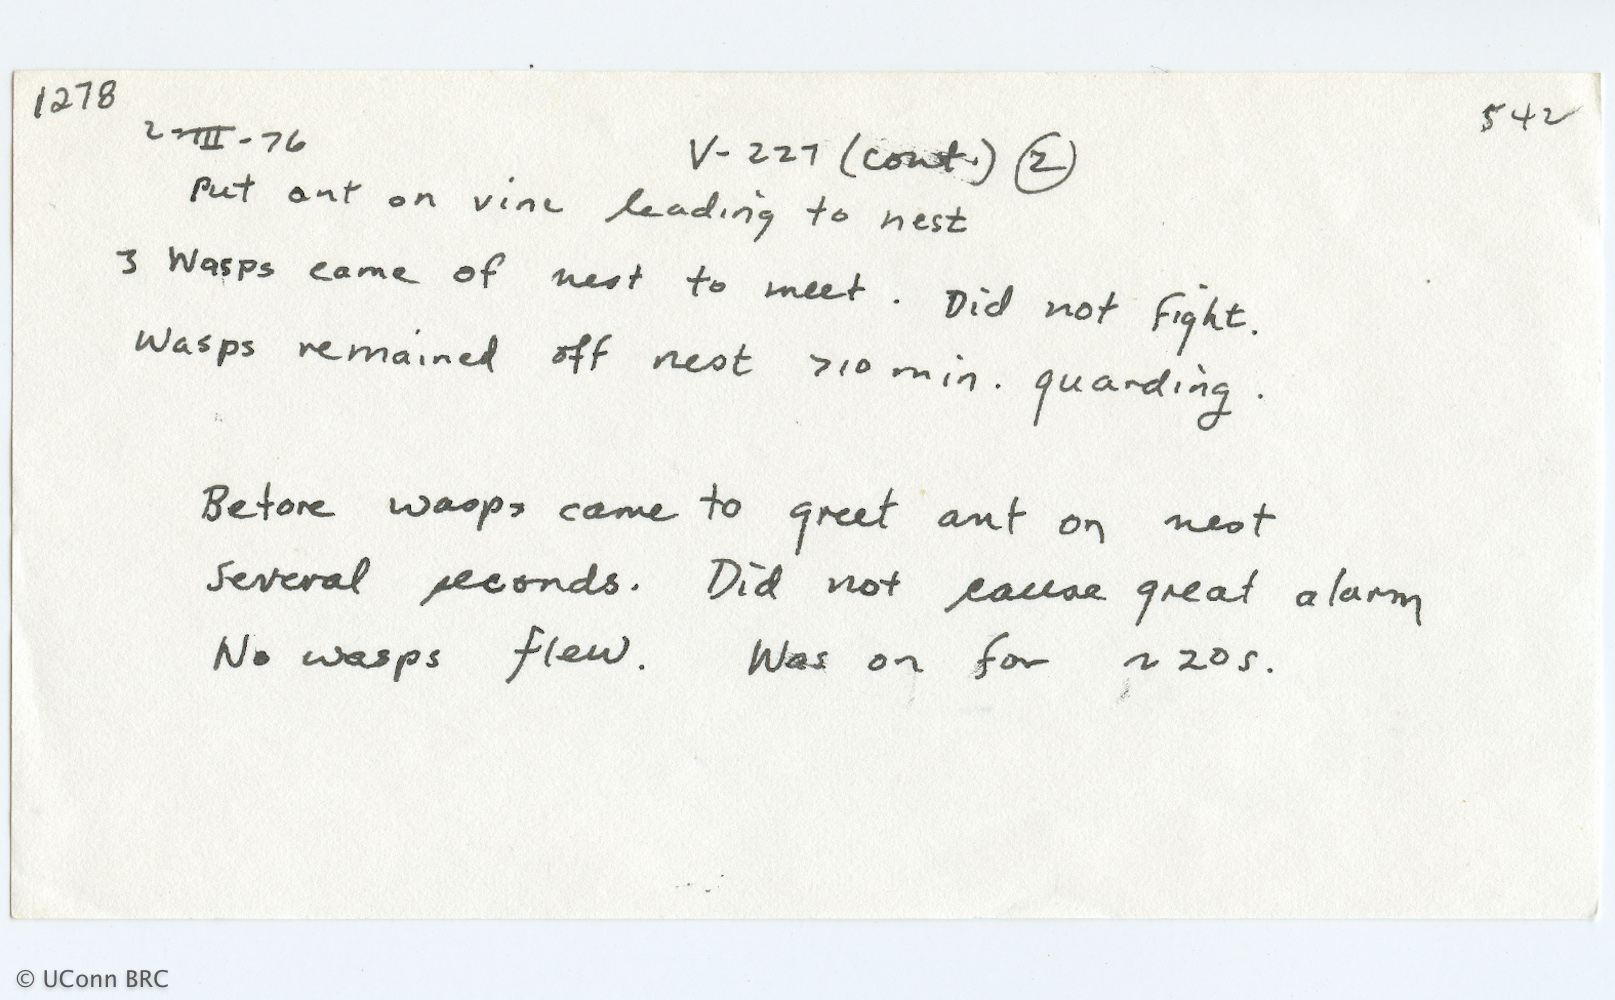 1278
542
2-III-76
V-227 (cont.) 2
Put ant on vine leading to nest
3 Wasps came of nest to meet. Did not fight.
Wasps remained off nest >10 min. guarding.
Before wasps came to greet ant on nest
several seconds. Did not cause great alarm
No wasps flew. Was on for ~20s.
© UConn BRC